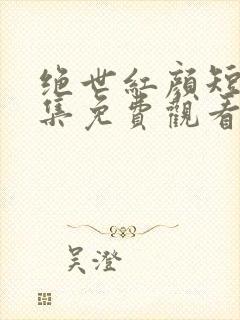 绝世紅顔短
集免費觀看
吴澄